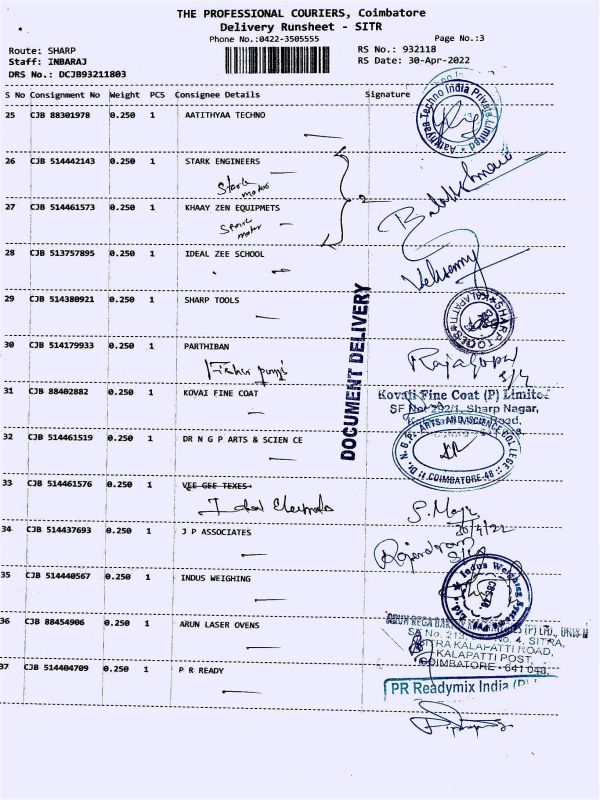 THE PROFESSIONAL COURIERS, Coimbatore
Delivery Runsheet - SITR
Phone No.:0422-3505555
Page No.:3
Route: SHARP
RS No.: 932118
Staff: INBARAJ
RS Date: 30-Apr-2022
DRS No.: DCJB93211803
S No Consignment No Weight PCS Consignee Details Signature
25 CJB 88301978 0.250 1 AATITHYAA TECHNO
Aatithyaa Techno India Private Limited
26 CJB 514442143 0.250 1 STARK ENGINEERS
Stark motor
27 CJB 514461573 0.250 1 KHAAY ZEN EQUIPMETS
motor
28 CJB 513757895 0.250 1 IDEAL ZEE SCHOOL
DOCUMENT DELIVERY
29 CJB 514380921 0.250 1 SHARP TOOLS
SHARP TOOLS KALAPATTI
30 CJB 514179933 0.250 1 PARTHIBAN
Rajagopal
31 CJB 88402882 0.250 1 KOVAI FINE COAT
Kovai Fine Coat (P) Limited
SF No. 292/1, Sharp Nagar,
32 CJB 514461519 0.250 1 DR N G P ARTS & SCIEN CE
Dr. N. G. P. ARTS AND SCIENCE COLLEGE COIMBATORE-48
33 CJB 514461576 0.250 1 VEE GEE TEXES
34 CJB 514437693 0.250 1 J P ASSOCIATES
Rajendran
35 CJB 514440567 0.250 1 INDUS WEIGHING
Indus Weighing
36 CJB 88454906 0.250 1 ARUN LASER OVENS
No. 4, SITRA,
SITRA KALAPATTI ROAD,
KALAPATTI POST,
COIMBATORE - 641 048
37 CJB 514404709 0.250 1 P R READY
PR Readymix India